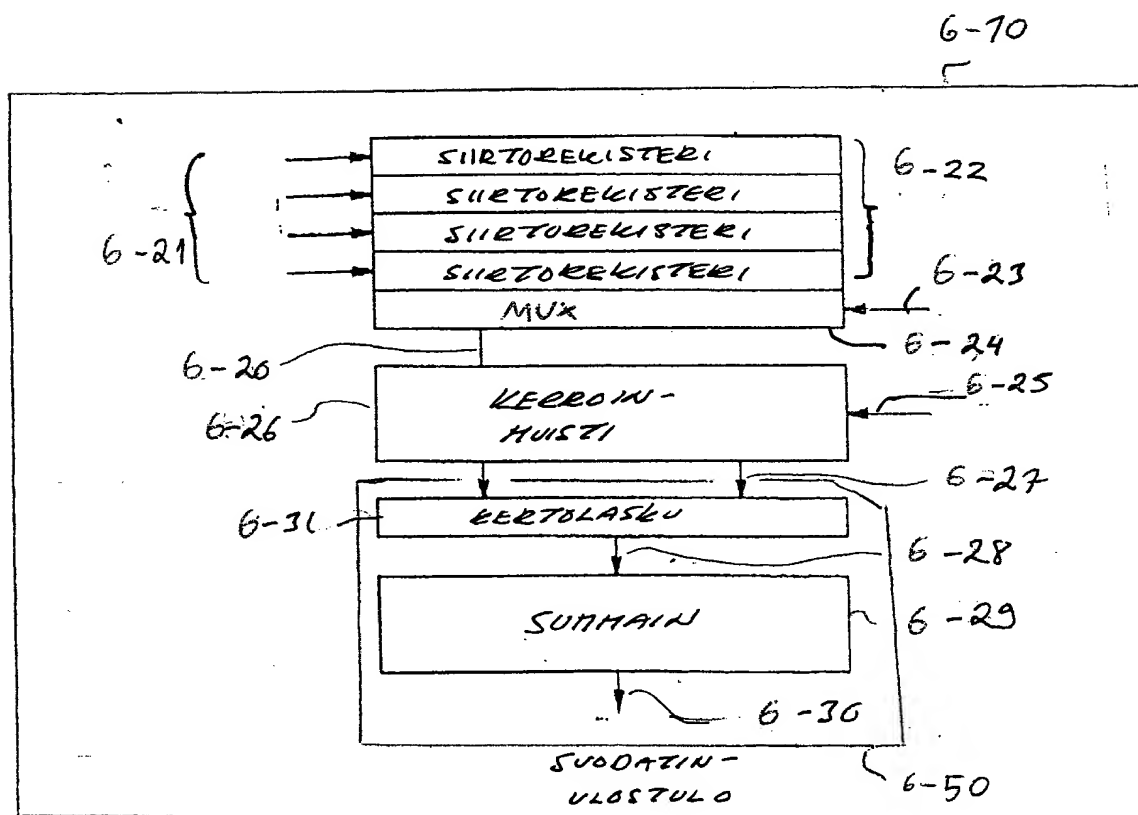 6-10
SIIRTOREKISTERI
6-22
SIIRTOREKISTERI
6-21
SIIRTOREKISTERI
SIIRTOREKISTERI
6-23
MUX
6-24
6-20
6-25
KERROIN-
6-26
MUISTI
6-27
6-31
KERTOLASKU
6-28
SUMMAIN
6-29
6-30
SUODATIN-
ULOSTULO
6-50